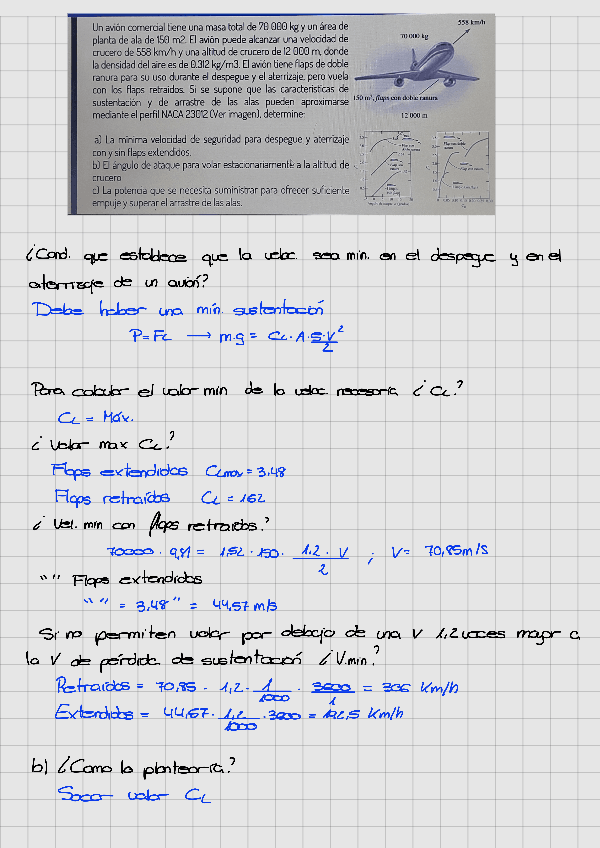 Un avión comercial tiene una masa total de 70 000 kg y un área de
planta de ala de 150 m2. El avión puede alcanzar una velocidad de
crucero de 558 km/h y una altitud de crucero de 12 000 m, donde
la densidad del aire es de 0.312 kg/m3. El avión tiene flaps de doble
ranura para su uso durante el despegue y el aterrizaje, pero vuela
con los flaps retraidos. Si se supone que las características de
sustentación y de arrastre de las alas pueden aproximarse
mediante el perfil NACA 23012 (Ver imagen), determine:
a) La mínima velocidad de seguridad para despegue y aterrizaje
con y sin flaps extendidos.
b) El ángulo de ataque para volar estacionariamente a la altitud de
crucero
c) La potencia que se necesita suministrar para ofrecer suficiente
empuje y superar el arrastre de las alas.
558 km/h
70 000 kg
150 m², flaps con doble ranura
12 000 m
¿Cond. que establece que la veloc. sea min. en el despegue y en el
aterrizaje de un avión?
Debe haber una mín. sustentación
P=FL → m.g = CL · A · S·V²/2
Para calcular el valor min de la veloc. necesaria ¿CL?
CL = Máx.
¿Valor max CL?
Flaps extendidos CLmax = 3,48
Flaps retraídos CL = 1,52
¿Vel. min con flaps retraidos?
70000 · 9,81 = 1,52 · 150 · 1,2 · V / 2 ; V= 70,85 m/s
"" Flaps extendidos
"" "" = 3,48 " = 44,57 m/s
Si no permiten volar por debajo de una V 1,2 veces mayor a
la V de pérdida de sustentación ¿V.min?
Retraídos = 70,85 · 1,2 · 1/1000 · 3600/1 = 306 Km/h
Extendidos = 44,57 · 1,2/1000 · 3600 = 192,5 Km/h
b) ¿Como lo plantearía?
Sacar valor CL